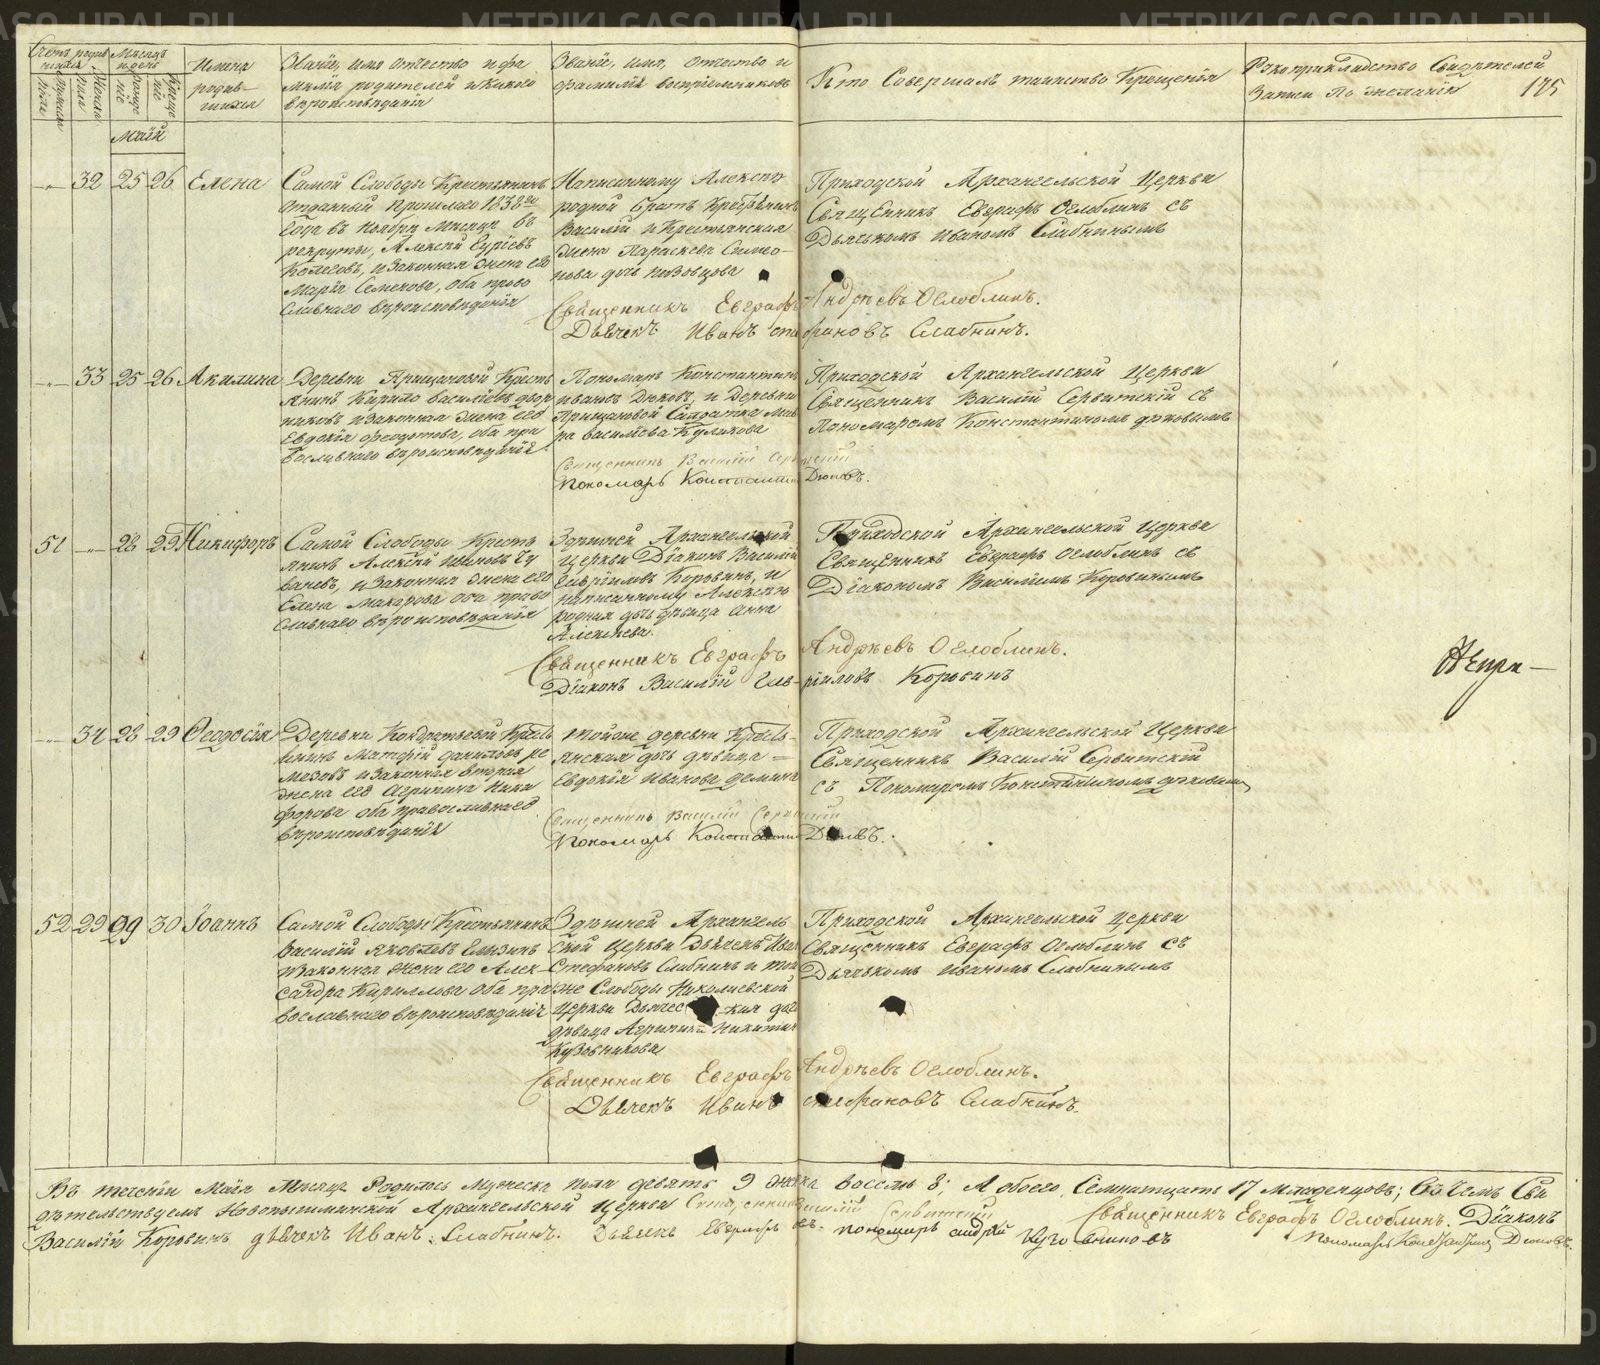 Счетъ родив
шихся
Мужеска
пола
Женска
пола
Месяцъ
и день
рожде
нія
креще
нія
Имена
родив-
шихся
Званіе, имя отчество и фа
милія родителей и какого
вѣроисповѣданія
Званіе, имя, отчество и
фамилія воспріемниковъ
Кто Совершалъ таинство Крещенія
Рукоприкладство Свидѣтелей
Записи По желанію
175
Маій
32 25 26 Елена
Самой Слободы Крестьянинъ
отданный прошлаго 1838го
Года въ Ноябрѣ Месяцѣ въ
рекруты, Алексѣй Гурьевъ
и законная жена его
Марія Семенова, оба право
славнаго вѣроисповѣданія
Написанному Алексѣю
родной братъ
Василій и Крестьянская
жена Параскева Симео-
нова дочь
Приходской Архангельской Церкви
Священникъ Евграфъ Оглоблинъ съ
Дьячкомъ Иваномъ Слабнинымъ
Священникъ Евграфъ Андреевъ Оглоблинъ.
Дьячекъ Иванъ Стефановъ Слабнинъ.
33 25 26 Акилина
Деревни Крестъ
янинъ Кирило Василіевъ Двор
никовъ и законная жена его
Евдокія Феодотова, оба пра
вославнаго вѣроисповѣданія
Пономарь Константинъ
Ивановъ Дюковъ, и Деревни
Солдатка Мав
ра Васильева Куликова
Приходской Архангельской Церкви
Священникъ Василій Серватскій съ
Пономаремъ Константиномъ Дюковымъ
Священникъ Василій Серватскій
Пономарь Константинъ Дюковъ.
51 28 29 Никифоръ
Самой Слободы Кресть
янинъ Алексѣй Ивановъ Чу
вашевъ, и законная жена его
Елена Макарова оба право
славнаго вѣроисповѣданія
Здешней Архангельской
Церкви Діаконъ Василій
Гавріиловъ Коровинъ, и
написанному Алексѣю
родная дочь дѣвица Анна
Алексѣева.
Приходской Архангельской Церкви
Священникъ Евграфъ Оглоблинъ съ
Діакономъ Василіемъ Коровинымъ
Священникъ Евграфъ Андреевъ Оглоблинъ.
Діаконъ Василій Гав-ріиловъ Коровинъ
34 28 29 Феодосія
Деревни Кондратьевой Кресть
янинъ Матфій Даниловъ Ре
мезовъ и законная вторая
жена его Агрипина Ники
форова оба православнаго
вѣроисповѣданія
Тойже деревни Кресть-
янская дочь дѣвица
Евдокія Иванова Демина
Приходской Архангельской Церкви
Священникъ Василій Серватскій
съ Пономаремъ Константиномъ Дюковымъ
Священникъ Василій Серватскій
Пономарь Константинъ Дюковъ.
52 29 29 30 Іоаннъ
Самой Слободы Крестьянинъ
Василій Яковлевъ
и законная жена его Алек-
сандра Кириллова оба пра
вославнаго вѣроисповѣданія
Здешней Архангель
ской Церкви Дьячекъ Иванъ
Стефановъ Слабнинъ и той
же Слободы Николаевской
Церкви дочь
дѣвица Агрипина Никитина
Кузовникова
Приходской Архангельской Церкви
Священникъ Евграфъ Оглоблинъ съ
Дьячкомъ Иваномъ Слабнинымъ
Священникъ Евграфъ Андреевъ Оглоблинъ.
Дьячекъ Иванъ Стефановъ Слабнинъ.
Въ теченіи Маія Месяца Родилось Мужеска пола девять 9 женска восемь 8; А обоего Семнатцать 17 Младенцовъ; Въ чемъ Сви
дѣтельствуемъ Новопышминской Архангельской Церкви Священникъ Василій Серватскій Священникъ Евграфъ Оглоблинъ. Діаконъ
Василій Коровинъ дьячекъ Иванъ Слабнинъ. Дьячекъ Евграфъ Пономарь Андрей Кузовниковъ Пономарь Константинъ Дюковъ.